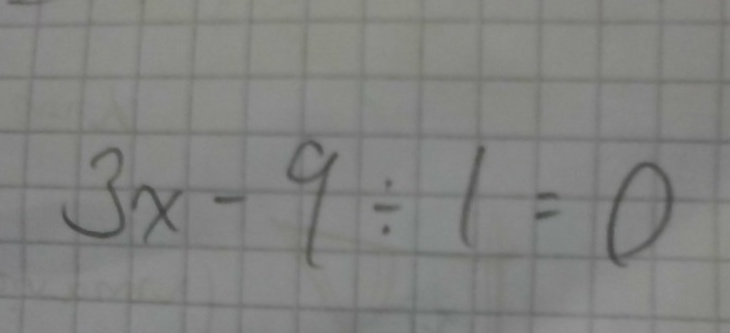 3x - 9 ÷ 1 = 0